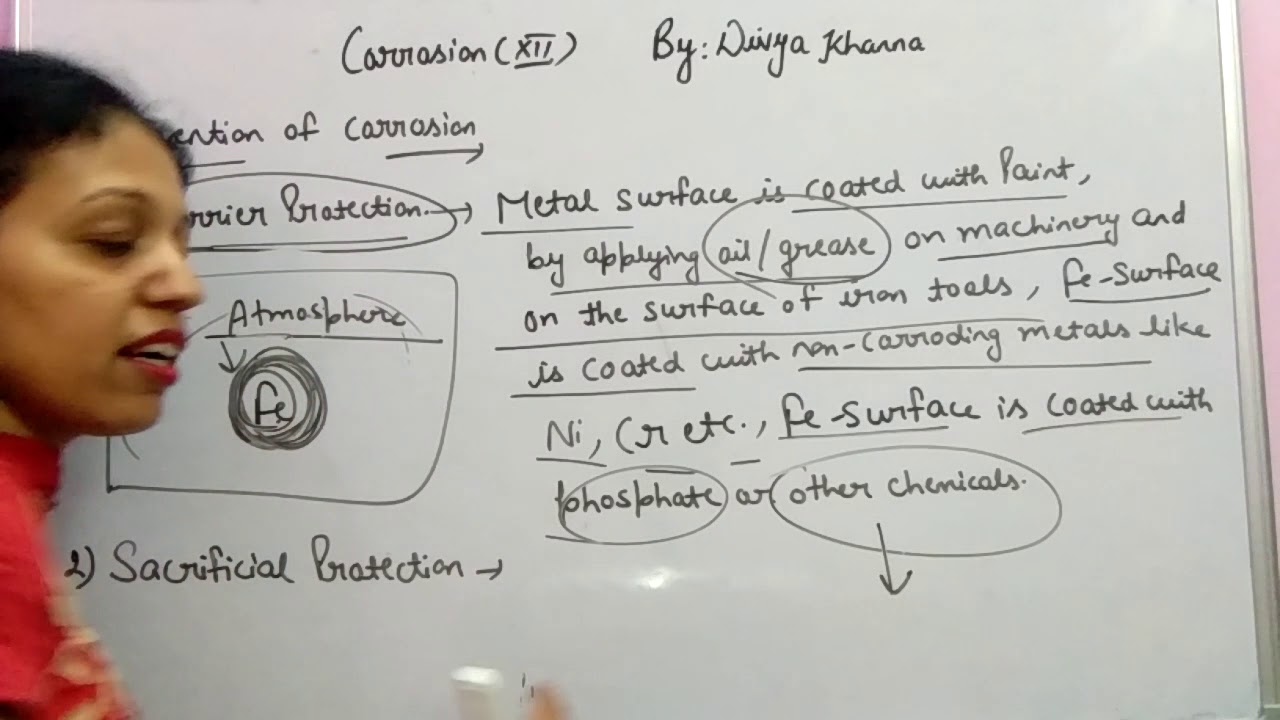 Corrosion (XII) By: Divya Khanna
ention of corrosion
rrier Protection → Metal surface is coated with Paint,
by applying oil/grease on machinery and
on the surface of iron tools, Fe-surface
is coated with non-corroding metals like
Ni, Cr etc., Fe-surface is coated with
phosphate or other chemicals.
Atmosphere
Fe
2) Sacrificial Protection →